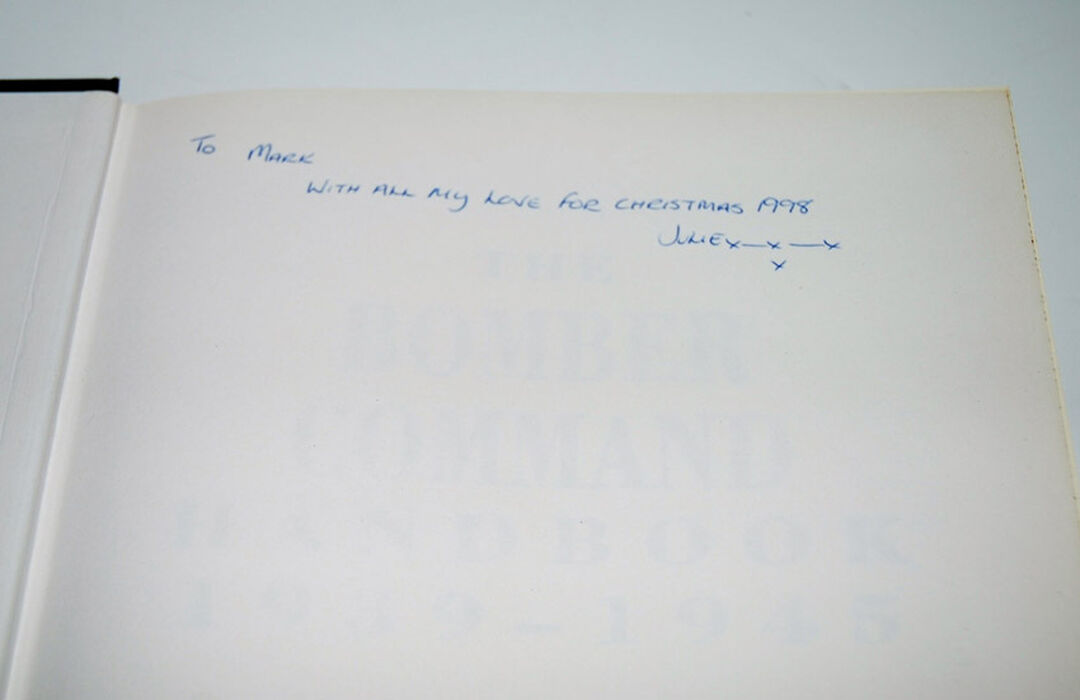 To MARK
WITH ALL MY LOVE FOR CHRISTMAS 1998
JULIE x — x — x
x
THE
BOMBER
COMMAND
HANDBOOK
1939-1945